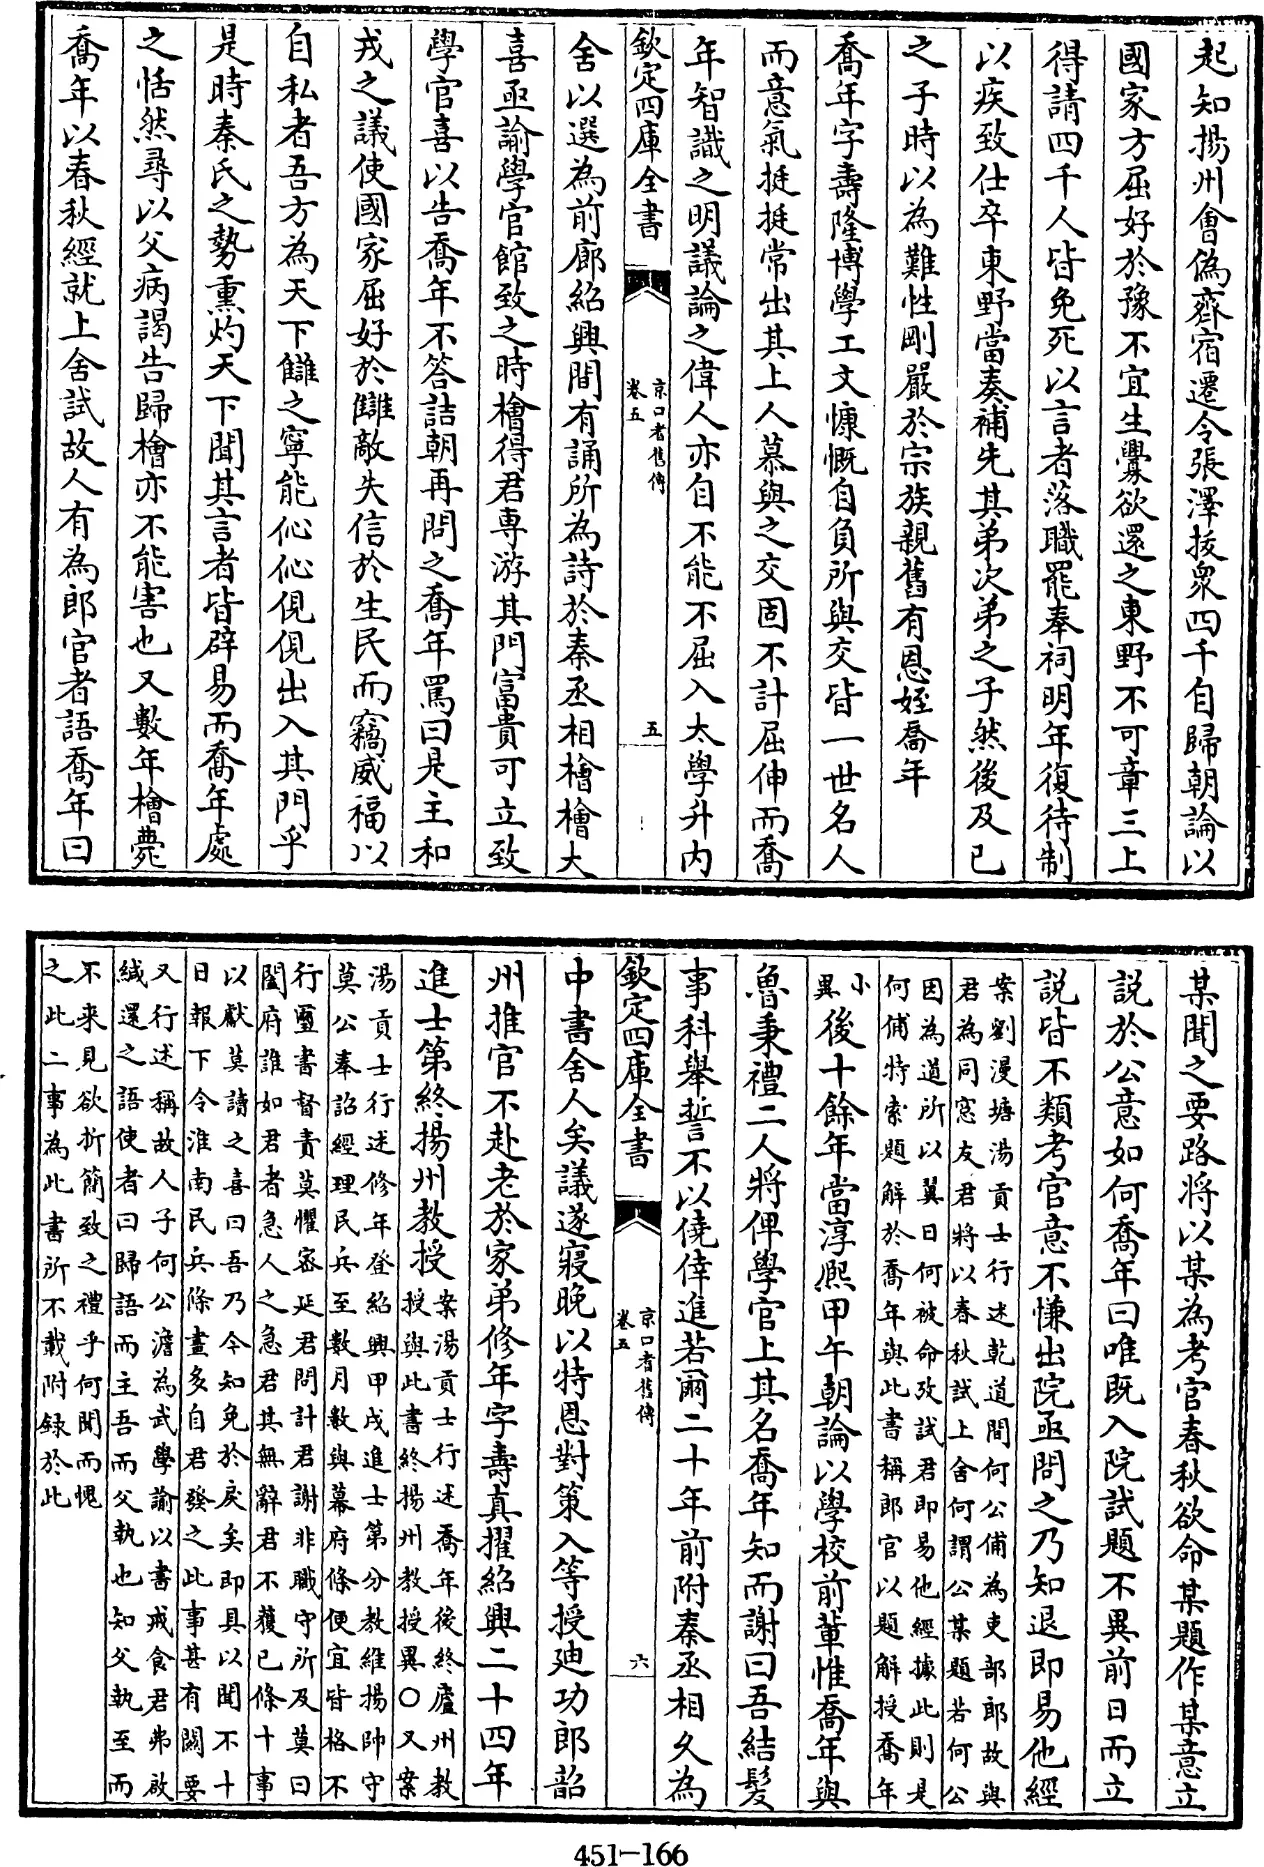 起知揚州會偽齊宿遷令張澤拔衆四千自歸朝論以
國家方屈好於豫不宜生釁欲還之東野不可章三上
得請四千人皆免死以言者落職罷奉祠明年復待制
以疾致仕卒東野當奏補先其弟次弟之子然後及已
之子時以為難性剛嚴於宗族親舊有恩姪喬年
喬年字壽隆博學工文慷慨自負所與交皆一世名人
而意氣挺挺常出其上人慕與之交固不計屈伸而喬
年智識之明議論之偉人亦自不能不屈入太學升内
欽定四庫全書
京口耆舊傳
卷五
五
舍以選為前廊紹興間有誦所為詩於秦丞相檜檜大
喜亟諭學官館致之時檜得君専游其門富貴可立致
學官喜以告喬年不答詰朝再問之喬年罵曰是主和
戎之議使國家屈好於讎敵失信於生民而竊威福以
自私者吾方為天下讎之寧能伈伈俔俔出入其門乎
是時秦氏之勢熏灼天下聞其言者皆辟易而喬年處
之恬然尋以父病謁告歸檜亦不能害也又數年檜薨
喬年以春秋經就上舍試故人有為郎官者語喬年曰
某聞之要路將以某為考官春秋欲命某題作某意立
説於公意如何喬年曰唯既入院試題不異前日而立
説皆不類考官意不慊出院亟問之乃知退即易他經
案劉漫塘湯貢士行述乾道間何公俌為吏部郎故與
君為同窓友君將以春秋試上舍何謂公某題若何公
因為道所以翼日何被命攷試君即易他經據此則是
何俌特索題解於喬年與此書稱郎官以題解授喬年
小
異
後十餘年當淳熈甲午朝論以學校前輩惟喬年與
魯秉禮二人將俾學官上其名喬年知而謝曰吾結髮
事科舉誓不以僥倖進若爾二十年前附秦丞相久為
欽定四庫全書
京口耆舊傳
卷五
六
中書舍人矣議遂寢晚以特恩對策入等授廸功郎韶
州推官不赴老於家弟修年字壽真擢紹興二十四年
進士第終揚州教授
案湯貢士行述喬年後終廬州教
授與此書終揚州教授異○又案
湯貢士行述修年登紹興甲戌進士第分教維揚帥守
莫公奉詔經理民兵至數月數與幕府條便宜皆格不
行璽書督責莫懼密延君問計君謝非職守所及莫曰
闔府誰如君者急人之急君其無辭君不獲已條十事
以獻莫讀之喜曰吾乃今知免於戾矣即具以聞不十
日報下令淮南民兵條畫多自君發之此事甚有闗要
又行述稱故人子何公澹為武學諭以書戒食君弗啟
緘還之語使者曰歸語而主吾而父執也知父執至而
不來見欲折簡致之禮乎何聞而愧
之此二事為此書所不載附錄於此
451-166